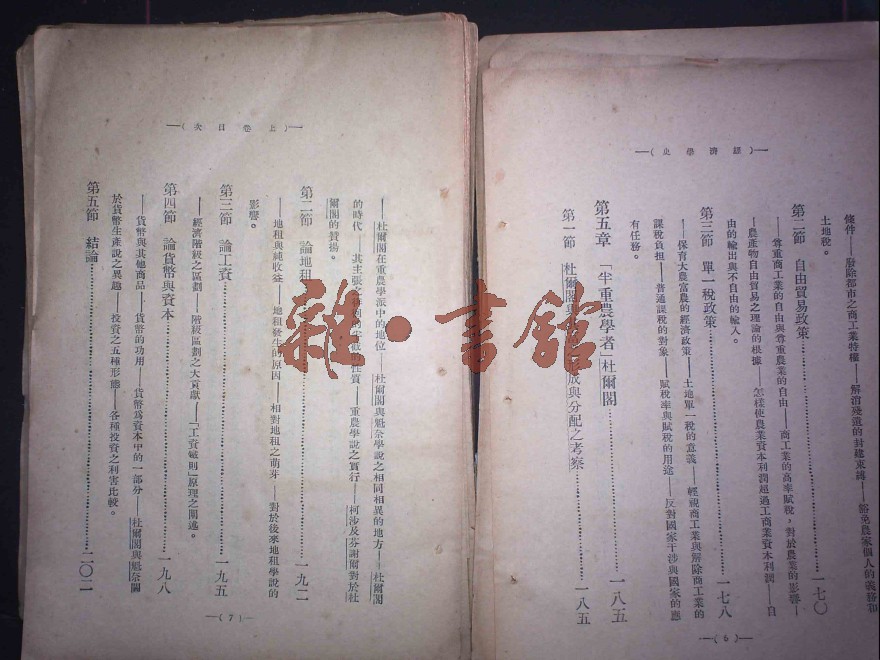 —(經濟學史)—
條件——廢除都市之商工業特權——解消殘遺的封建束縛——豁免農家個人的義務和
土地稅。
第二節 自由貿易政策……一七〇
——尊重商工業的自由與尊重農業的自由——商工業的高率賦稅，對於農業的影響—
—農產物自由貿易之理論的根據——怎樣使農業資本利潤超過工商業資本利潤——自
由的輸出與不自由的輸入。
第三節 單一稅政策……一七八
——保育大農富農的經濟政策——土地單一稅的意義——輕視商工業與解除商工業的
課稅負擔——普通課稅的對象——賦稅率與賦稅的用途——反對國家干涉與國家的應
有任務。
第五章 「半重農學者」杜爾閣……一八五
第一節 杜爾閣與 成與分配之考察……一八五
—(6)—
—(上卷目次)—
——杜爾閣在重農學派中的地位——杜爾閣與魁奈學說之相同相異的地方——杜爾閣
的時代——其主張之 性質——重農學說之實行——柯沙及芬謝爾對於杜
爾閣的贊揚。
第二節 論地租……一九二
——地租與純收益——地租發生的原因——相對地租之萌芽——對於後來地租學說的
影響。
第三節 論工資……一九五
——經濟階級之區劃——階級區劃之大貢獻——「工資鐵則」原理之闡述。
第四節 論貨幣與資本……一九八
——貨幣與其他商品——貨幣的功用——貨幣爲資本中的一部分——杜爾閣與魁奈關
於貨幣生產說之異趣——投資之五種形態——各種投資之利害比較。
第五節 結論……二〇二
—(7)—
雜·書館